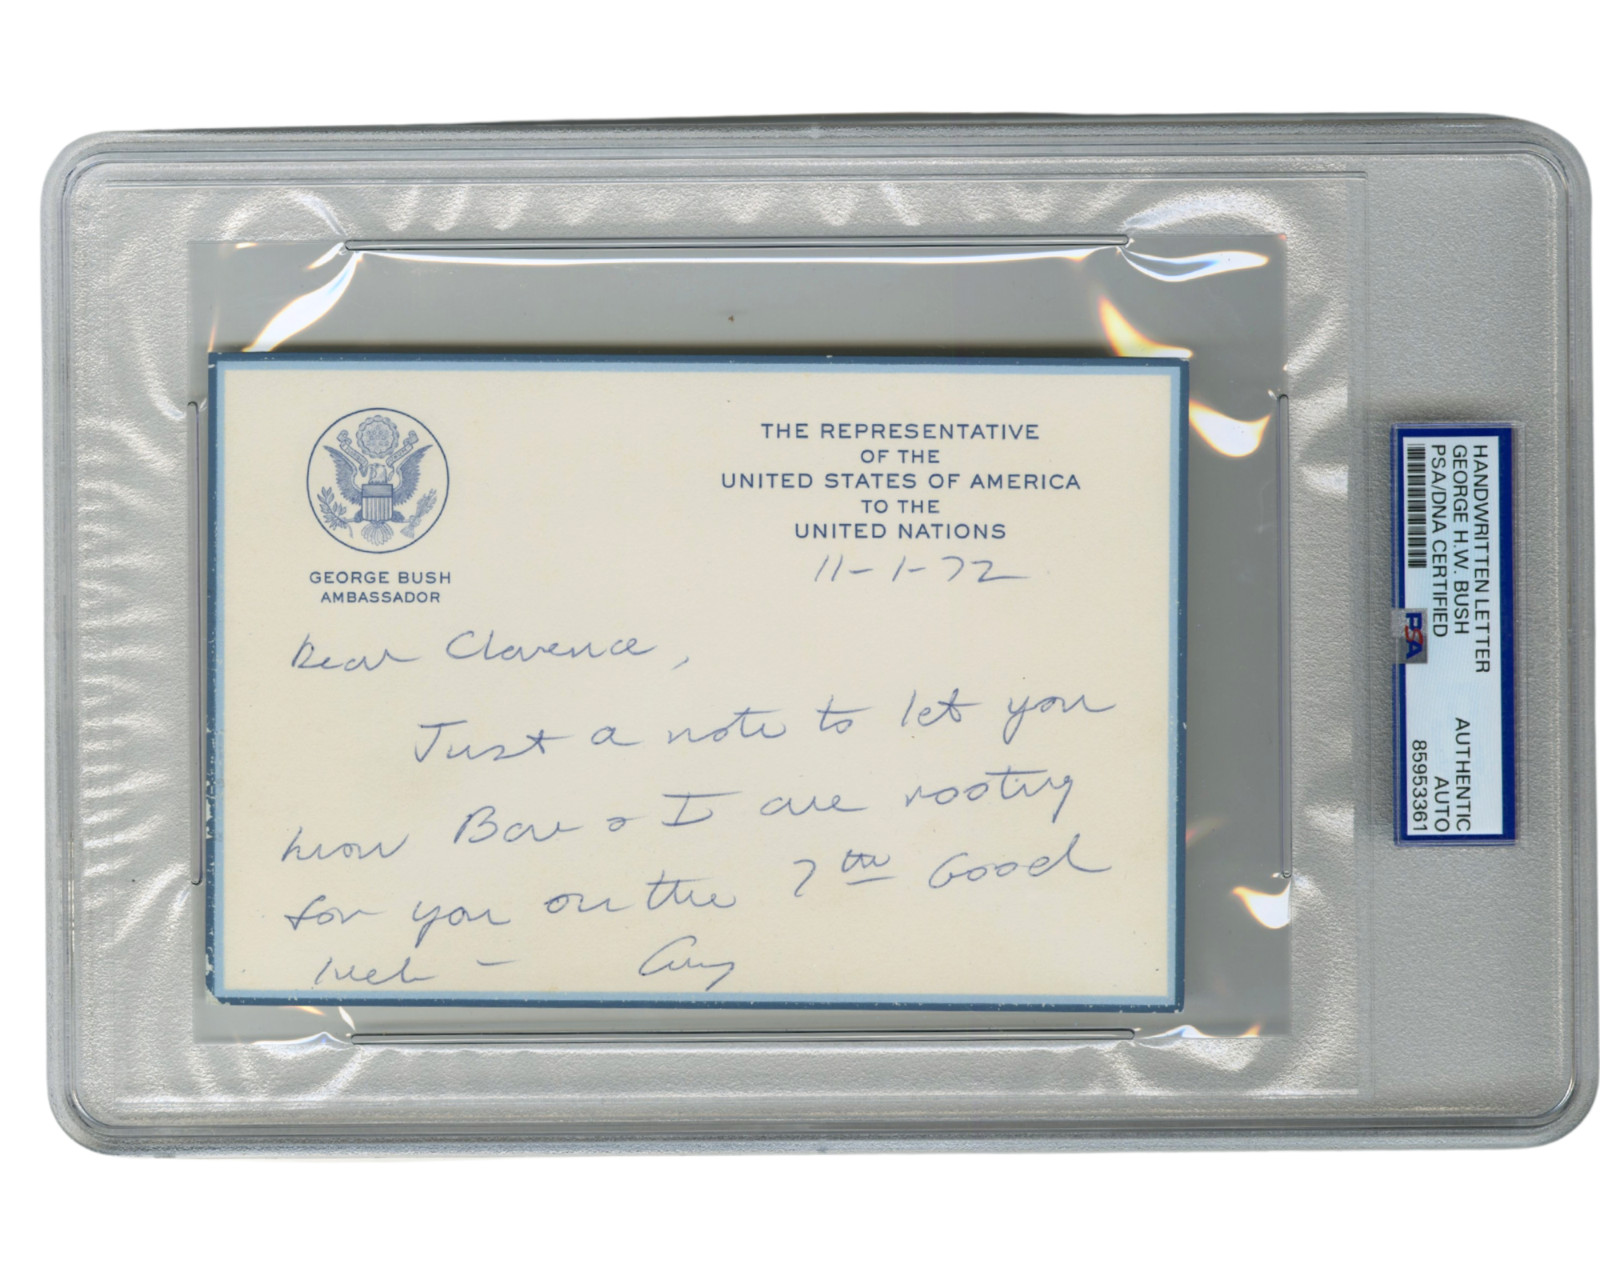 THE REPRESENTATIVE
OF THE
UNITED STATES OF AMERICA
TO THE
UNITED NATIONS
GEORGE BUSH
AMBASSADOR
11-1-72
Dear Clarence,
Just a note to let you
know Bar & I are rooting
for you on the 7th Good
luck -
HANDWRITTEN LETTER
GEORGE H.W. BUSH
PSA/DNA CERTIFIED
AUTHENTIC
AUTO
85953361
PSA